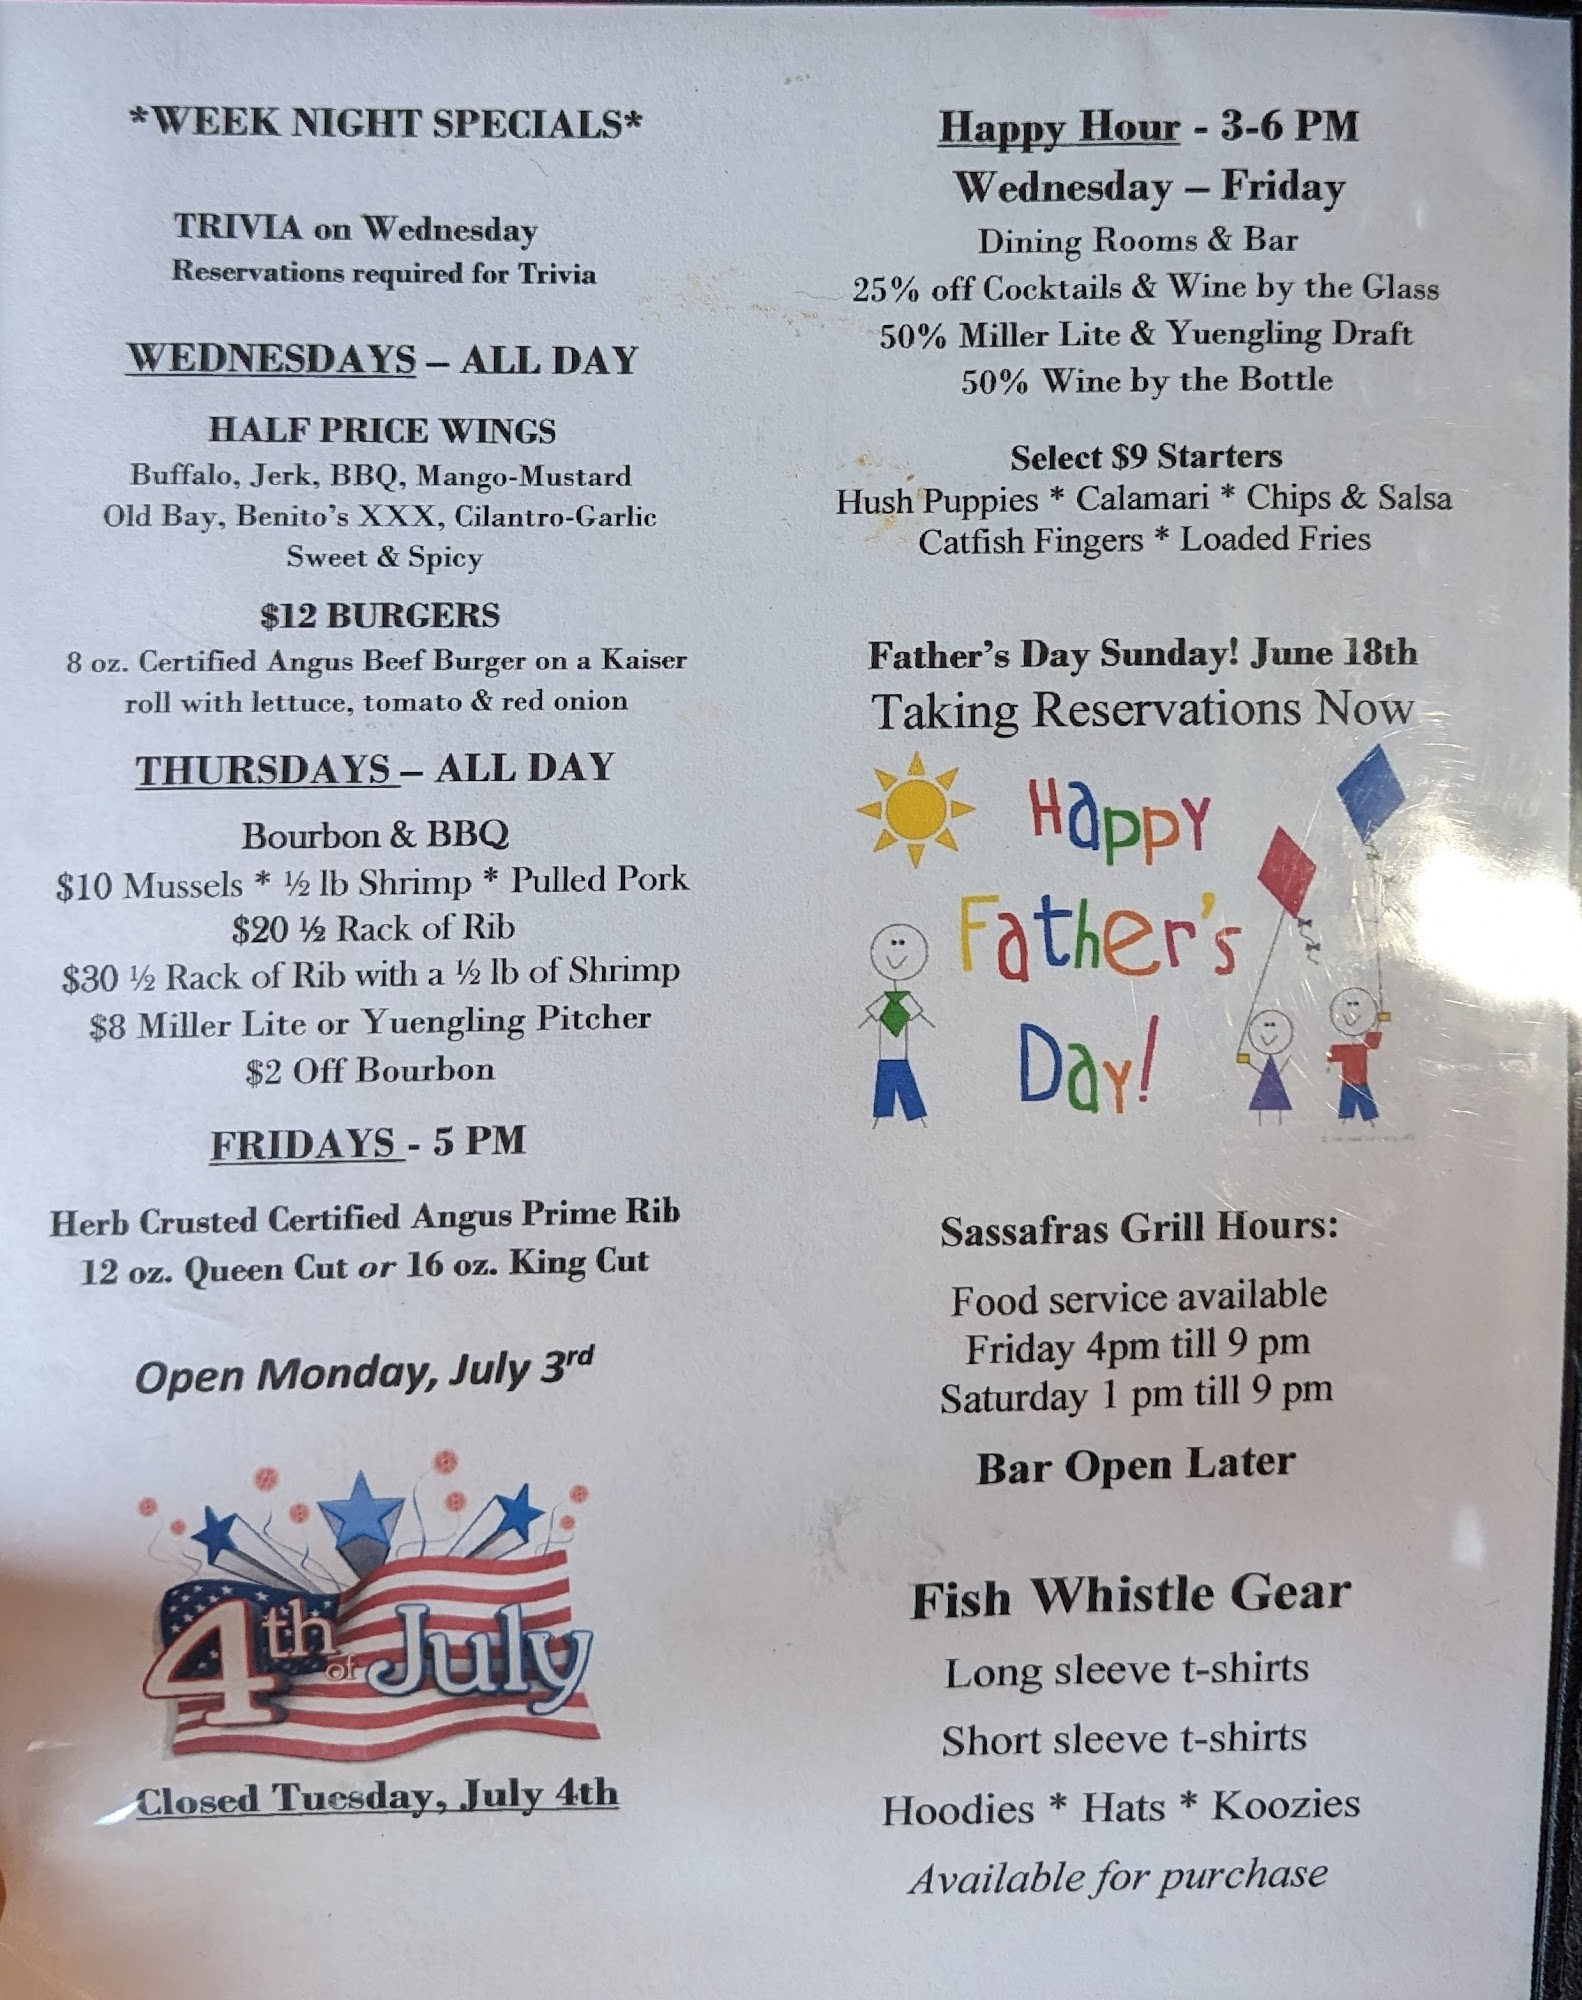 *WEEK NIGHT SPECIALS*
TRIVIA on Wednesday
Reservations required for Trivia
WEDNESDAYS – ALL DAY
HALF PRICE WINGS
Buffalo, Jerk, BBQ, Mango-Mustard
Old Bay, Benito's XXX, Cilantro-Garlic
Sweet & Spicy
$12 BURGERS
8 oz. Certified Angus Beef Burger on a Kaiser
roll with lettuce, tomato & red onion
THURSDAYS – ALL DAY
Bourbon & BBQ
$10 Mussels * ½ lb Shrimp * Pulled Pork
$20 ½ Rack of Rib
$30 ½ Rack of Rib with a ½ lb of Shrimp
$8 Miller Lite or Yuengling Pitcher
$2 Off Bourbon
FRIDAYS - 5 PM
Herb Crusted Certified Angus Prime Rib
12 oz. Queen Cut or 16 oz. King Cut
Open Monday, July 3rd
4th of July
Closed Tuesday, July 4th
Happy Hour - 3-6 PM
Wednesday – Friday
Dining Rooms & Bar
25% off Cocktails & Wine by the Glass
50% Miller Lite & Yuengling Draft
50% Wine by the Bottle
Select $9 Starters
Hush Puppies * Calamari * Chips & Salsa
Catfish Fingers * Loaded Fries
Father's Day Sunday! June 18th
Taking Reservations Now
Happy
Father's
Day!
Sassafras Grill Hours:
Food service available
Friday 4pm till 9 pm
Saturday 1 pm till 9 pm
Bar Open Later
Fish Whistle Gear
Long sleeve t-shirts
Short sleeve t-shirts
Hoodies * Hats * Koozies
Available for purchase